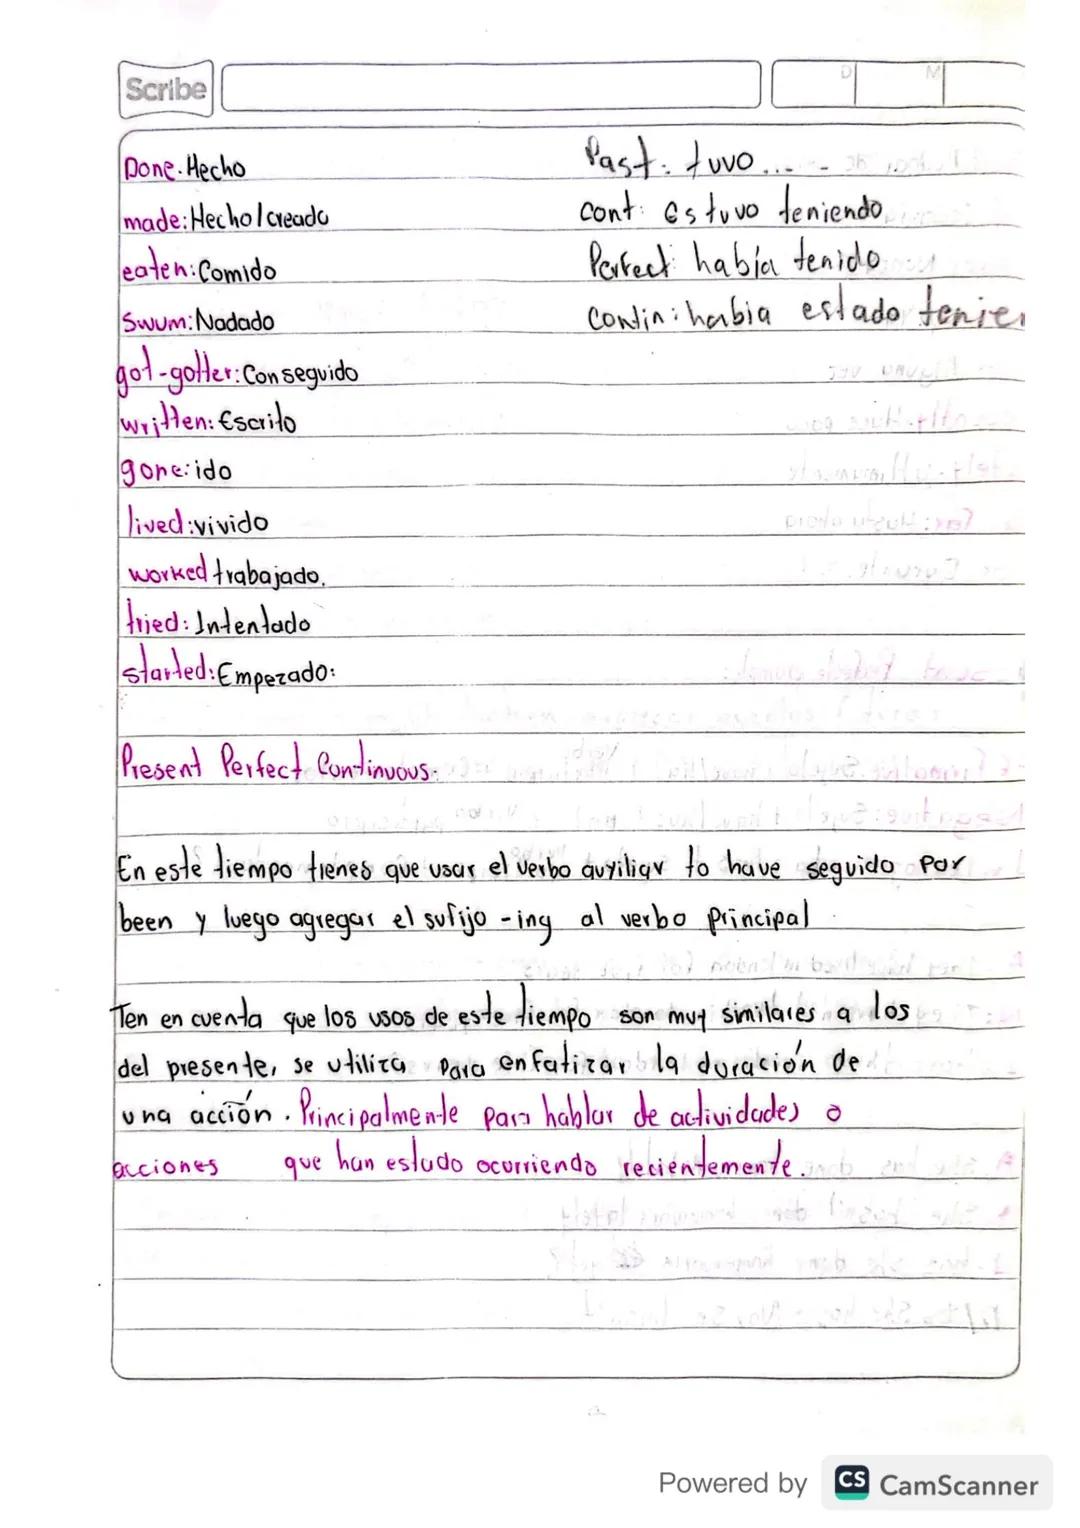 Scribe
D M
Done. Hecho
made: Hecho/creado
eaten: Comido
Swum: Nadado
got-gotten: Conseguido
written: Escrito
gone: ido
lived: vivido
worked trabajado.
tried: Intentado
started: Empezado:
Past: tuvo....-
cont: estuvo teniendo
Perfect: había tenido
Contin: habia estado
Present Perfect Continuous:
En este tiempo tienes que usar el verbo auxiliar to have seguido por
been y luego agregar el sufijo -ing al verbo principal
Ten en cuenta que los usos de este tiempo son muy similares a los
del presente, se utiliza para enfatizar la duración de
una acción. Principalmente para hablar de actividades o
acciones que han estado ocurriendo recientemente.
Powered by CS CamScanner